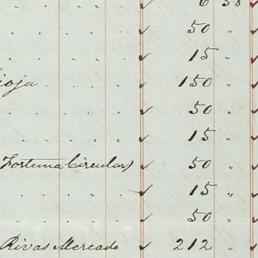 6 38
50 "
15 "
ioja. 150 "
50 "
15 "
Fortuna Circular) 50 "
15 "
50 "
Rivas Mercado 212 "